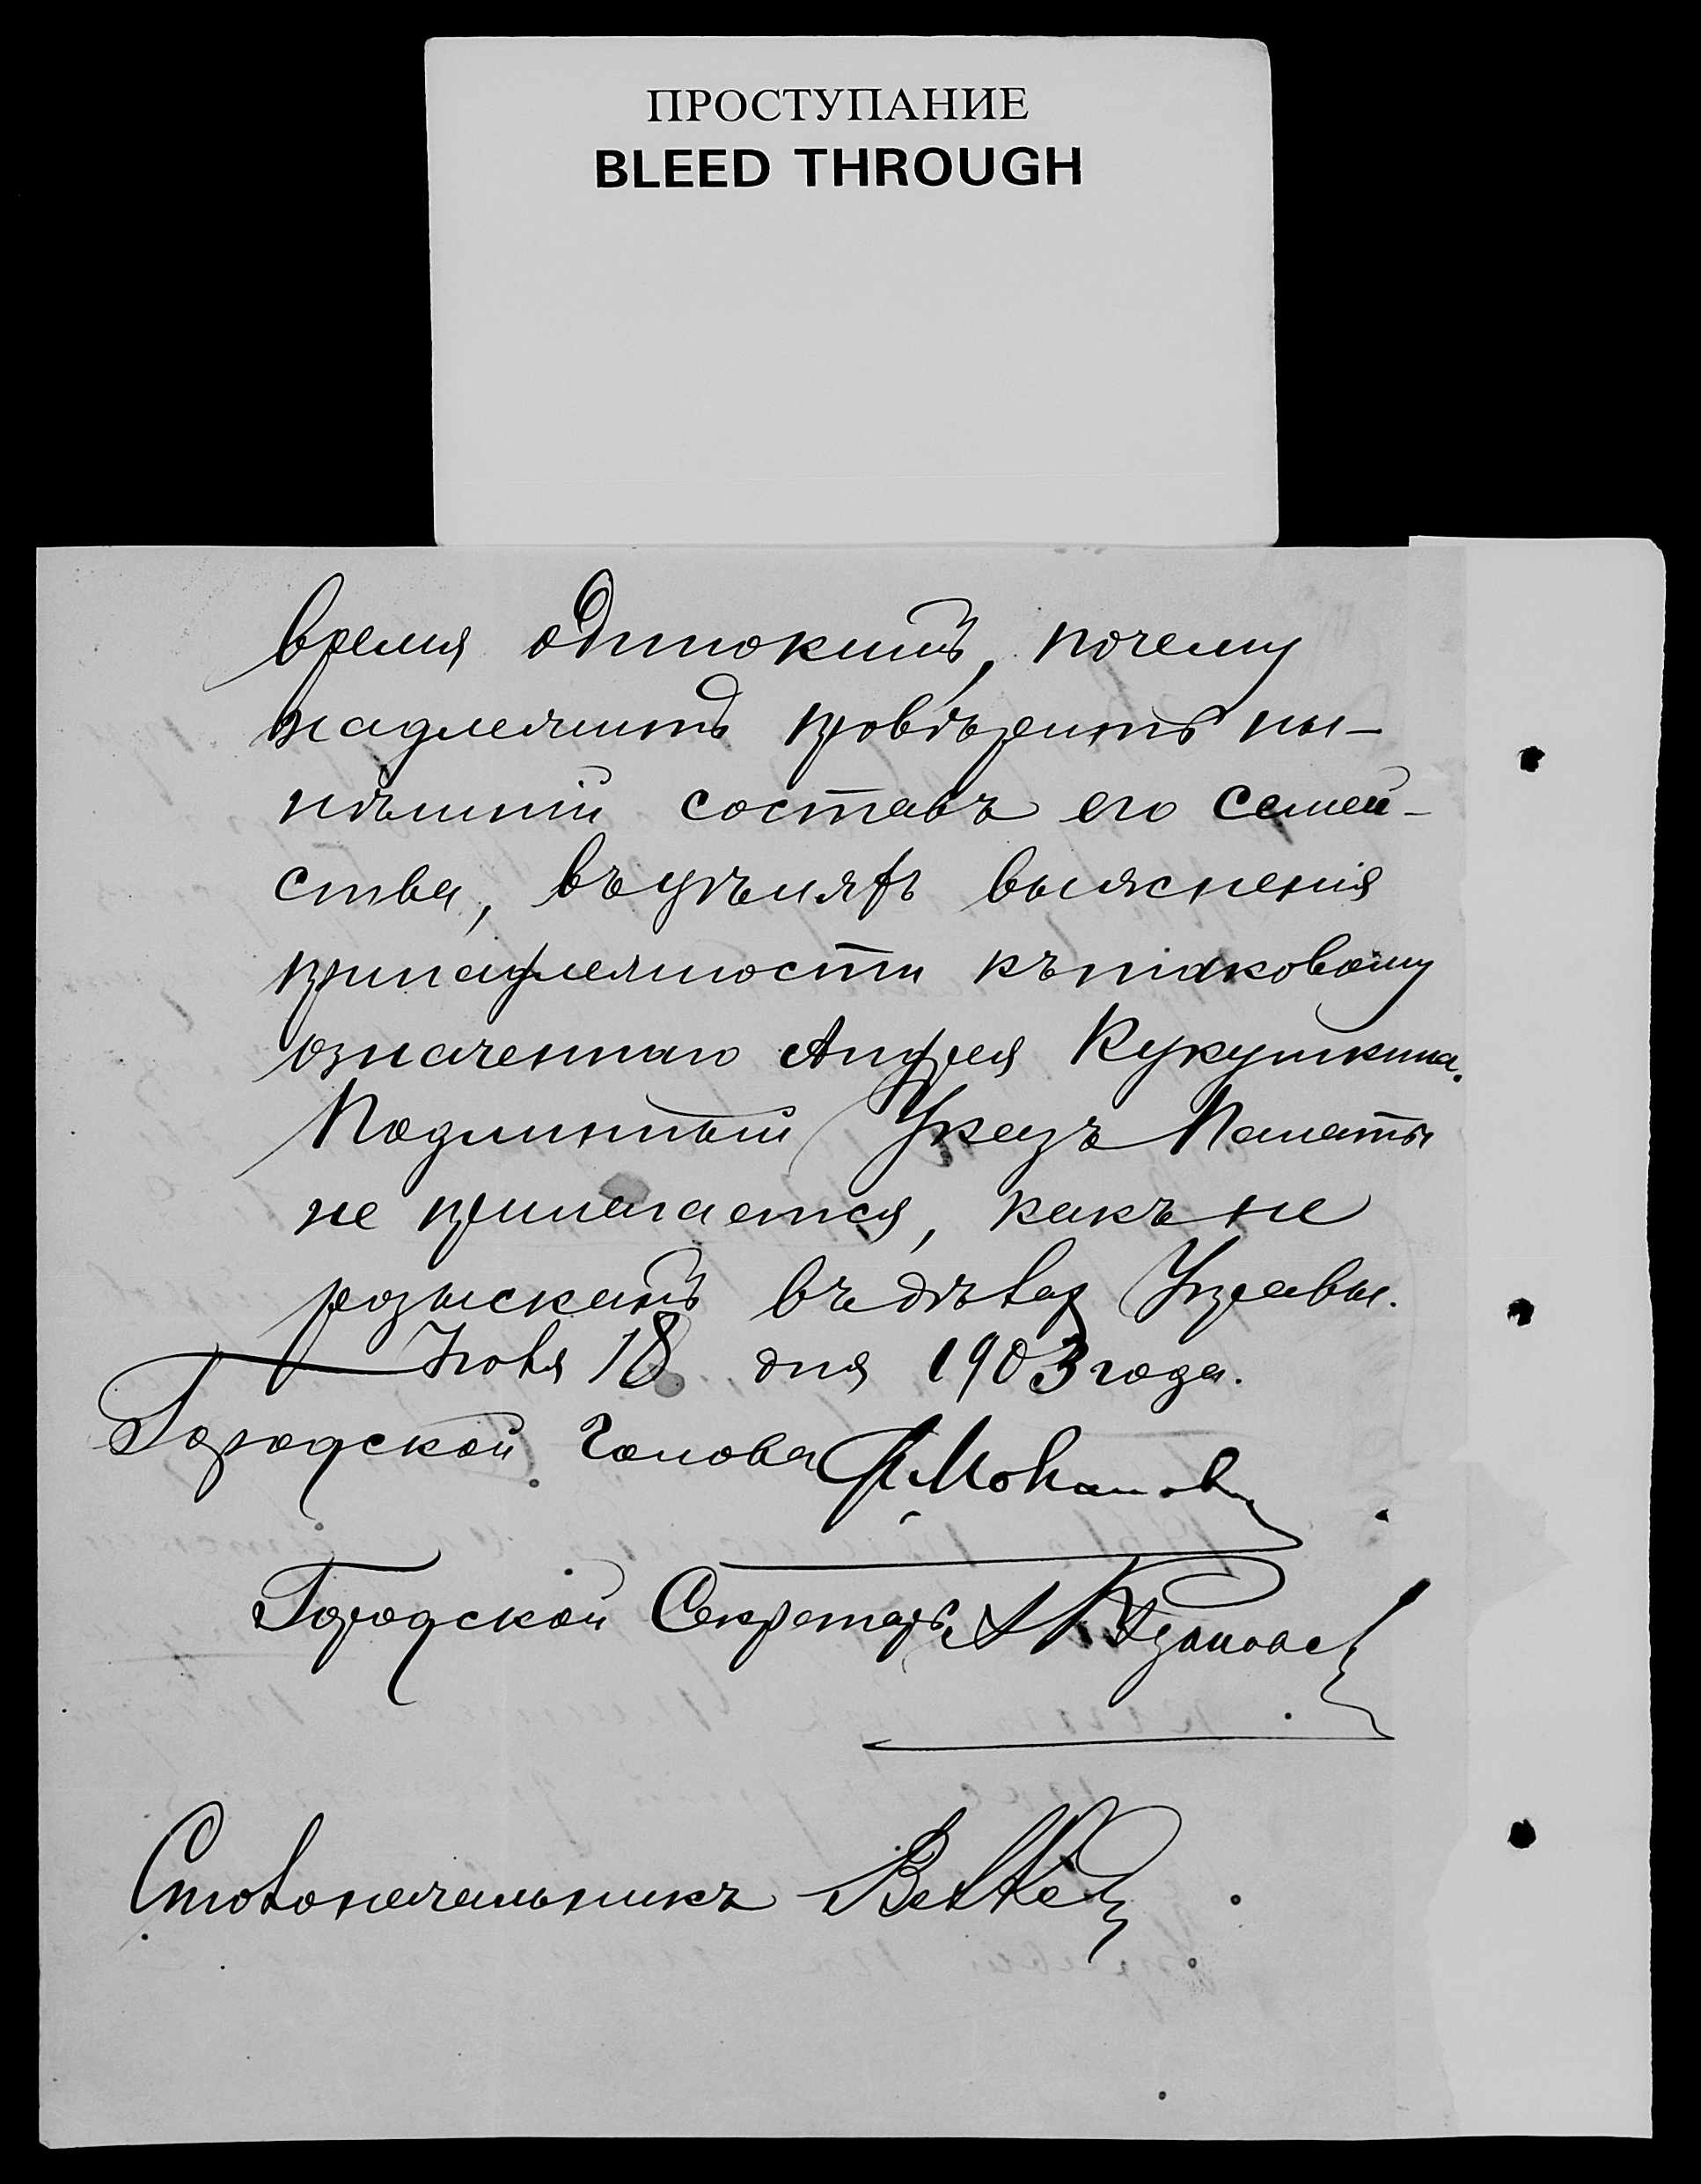 ПРОСТУПАНИЕ
BLEED THROUGH
время одинокимъ, почему
надлежитъ провѣрить ны-
нѣшній составъ его семей-
ства, въ цѣляхъ выясненія
принадлежности къ таковому
означеннаго Андрея Кукушкина.
Подлинный Указъ Палаты
не прилагается, какъ не
розысканъ въ дѣлах Управы.
Іюля 18 дня 1903 года.
Городской Голова
Городской Секретарь
Столоначальникъ